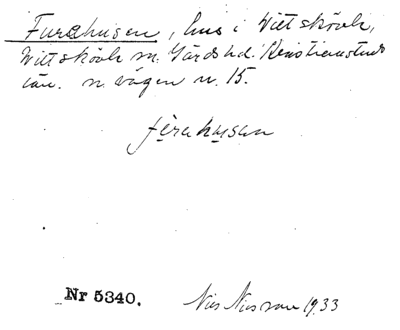 Furahusen, hus i Vittskövle,
Vittskövle sn. Gärds hd. Kristianstads
län. n. vägen n. 15.
fọrahụsen
Nr 5340. Nils Nilsson 1933